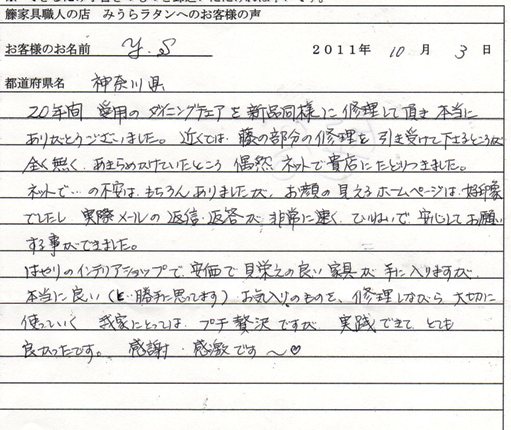 藤家具職人の店 みうらラタンへのお客様の声
お客様のお名前 Y.S 2011年 10月 3日
都道府県名 神奈川県
20年間 愛用のダイニングチェアを新品同様に修理して頂き本当に
ありがとうございました。近くでは、藤の部分の修理を引き受けて下さるところが
全く無く、あきらめかけていたところ 偶然 ネットで貴店にたどりつきました。
ネットで…の不安は、もちろんありましたが、お顔の見えるホームページは、好印象
でしたし 実際メールの返信・返答が非常に速く、ていねいで、安心してお願い
する事ができました。
はやりのインテリアショップで、安価で見栄えの良い家具が手に入りますが、
本当に良い(と…勝手に思ってます)お気入りのものを、修理しながら 大切に
使っていく 我家にとっては、プチ贅沢ですが 実践できて、とても
良かったです。 感謝・感激です～♡